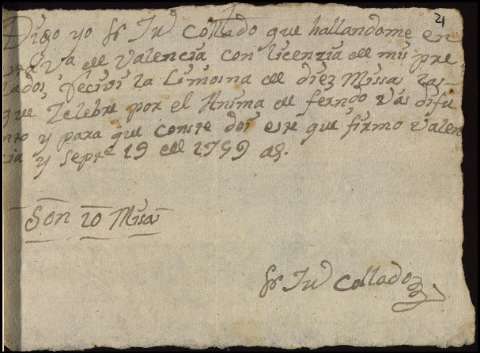 21
Digo yo fr Ju.n Collado que hallandome en
de Valencia con licenzia de mis pre
lados, recivi la Limosna de diez Missas las
que Zelebre por el Anima de fern.do Vas difu
nto y para que conste doi este que firmo Valen
cia y sep.re 19 de 1759 as.
Son 10 Misas
fr Ju.n Collado